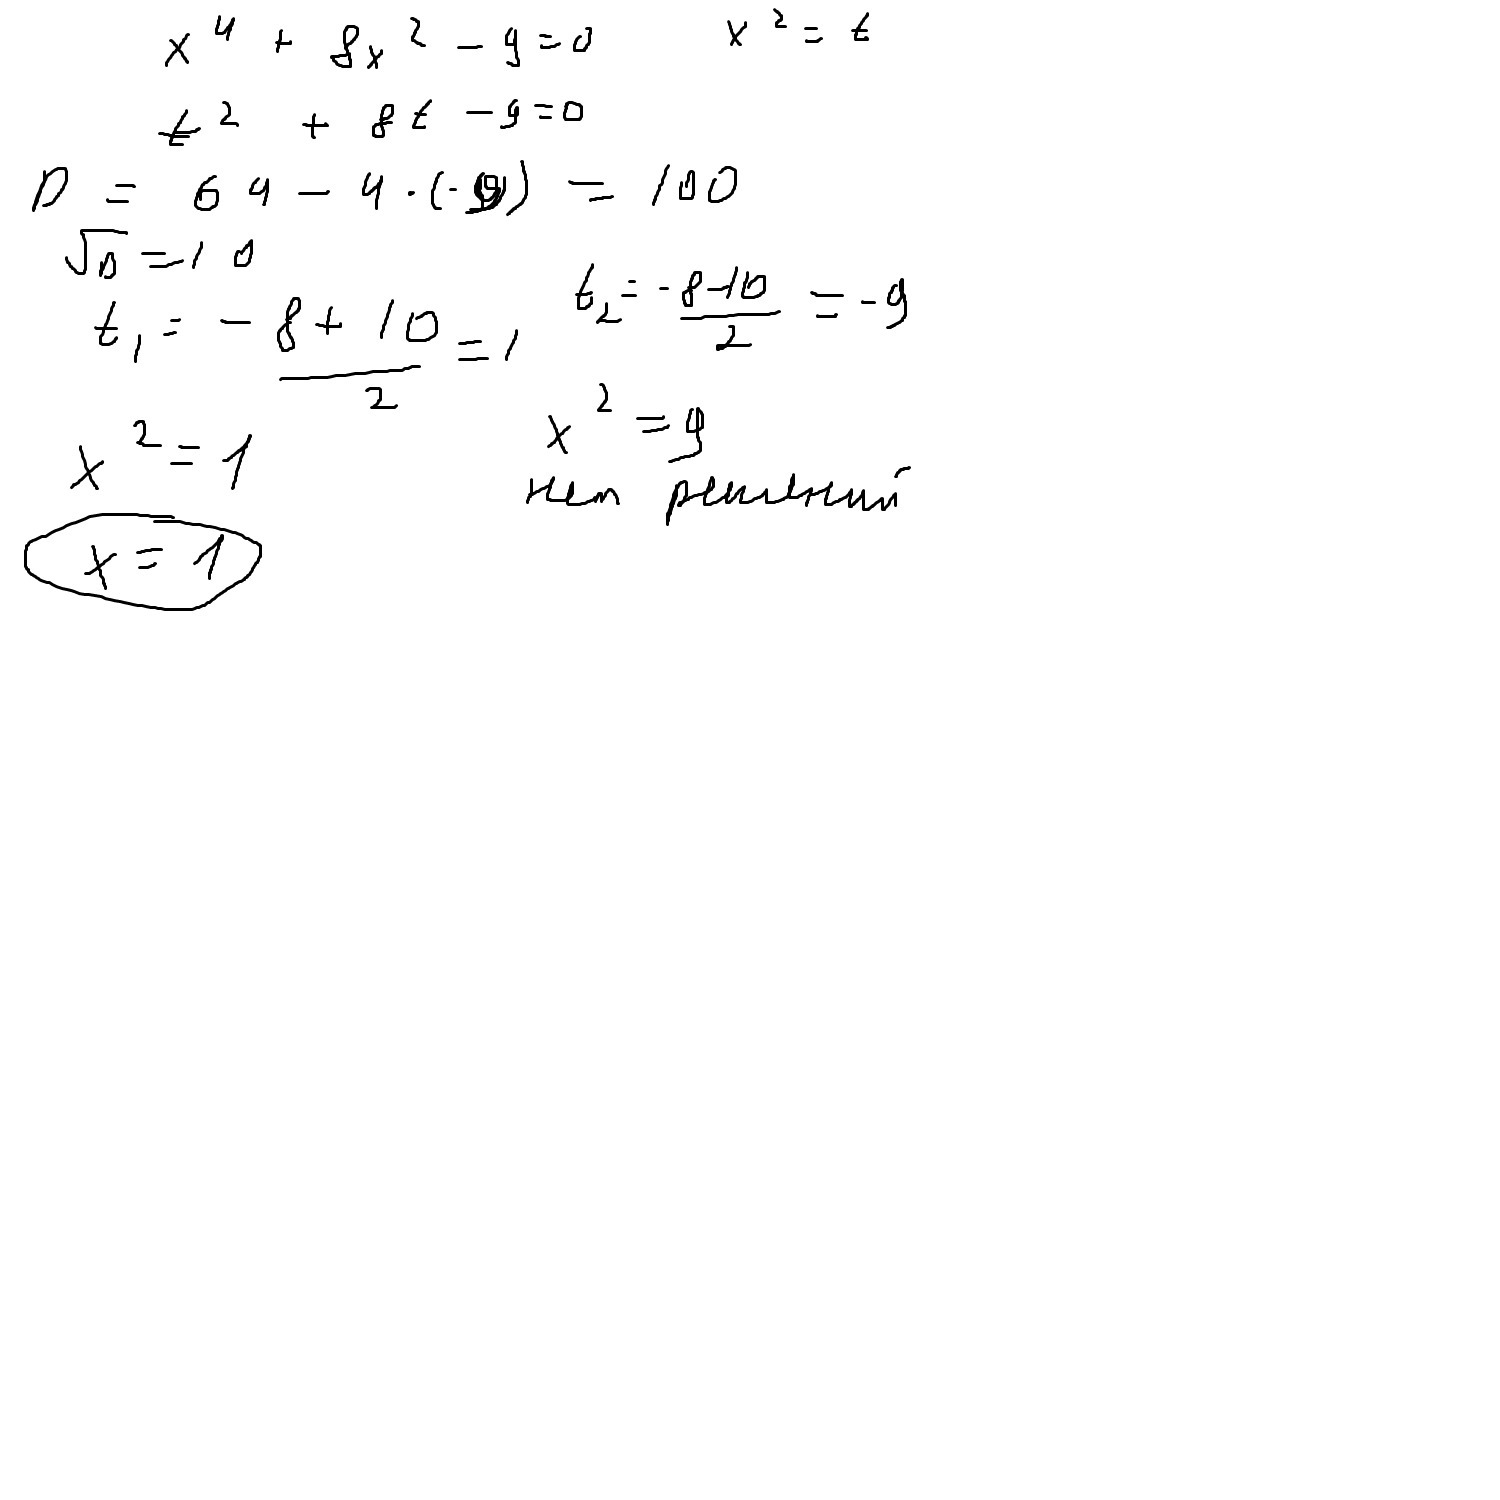 x⁴ + 8x² - 9 = 0    x² = t
t² + 8t - 9 = 0
D = 64 - 4 · (-9) = 100
√D = 10
t₁ = (-8 + 10)/2 = 1    t₂ = (-8 - 10)/2 = -9
x² = 1    x² = 9
нет решений
x = 1